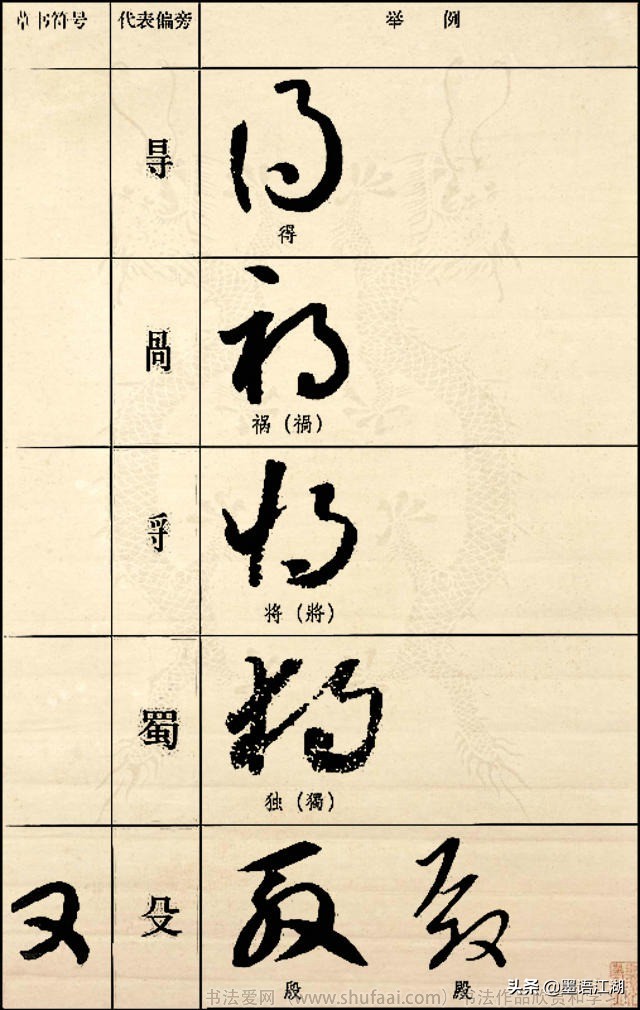 草书符号 代表偏旁 举例
㝵
得
咼
祸（禍）
将（將）
蜀
独（獨）
又 殳
段 殿
书法爱网（www.shufaai.com）书法作品欣赏和学习
头条 @墨语江湖